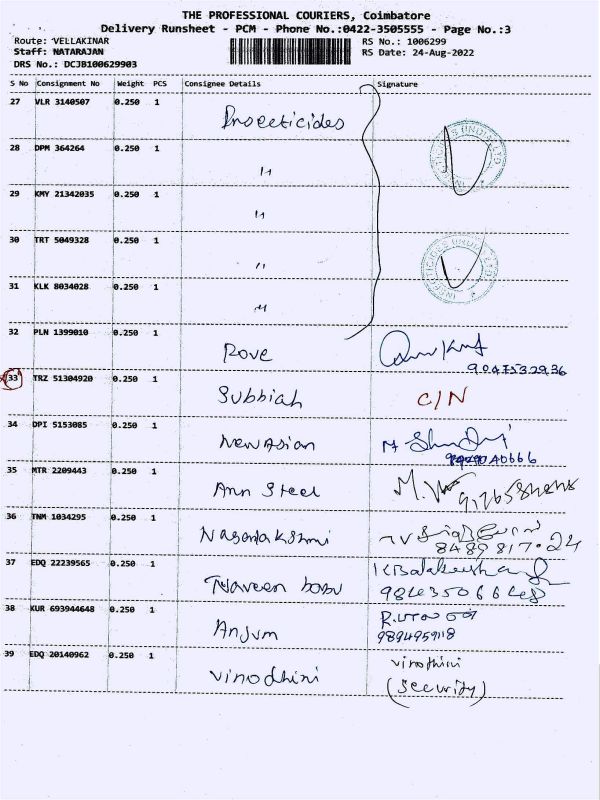 THE PROFESSIONAL COURIERS, Coimbatore
Delivery Runsheet - PCM - Phone No.:0422-3505555 - Page No.:3
Route: VELLAKINAR RS No.: 1006299
Staff: NATARAJAN RS Date: 24-Aug-2022
DRS No.: DCJB100629903
S No Consignment No Weight PCS Consignee Details Signature
27 VLR 3140507 0.250 1 Insecticides
INSECTICIDES (INDIA) LTD
28 DPM 364264 0.250 1 〃
29 KMY 21342035 0.250 1 〃
30 TRT 5049328 0.250 1 〃
INSECTICIDES (INDIA) LTD
31 KLK 8034028 0.250 1 〃
32 PLN 1399010 0.250 1 Rove
33 TRZ 51304920 0.250 1 Subbiah C/N
34 DPI 5153085 0.250 1 New Asian
35 MTR 2209443 0.250 1 Ann Steel
36 TNM 1034295 0.250 1 Nagantakshmi
8489817.24
37 EDQ 22239565 0.250 1 Naveen babu
38 KUR 693944648 0.250 1 Anjum
9894959118
39 EDQ 20140962 0.250 1 vinodhini vinothini
(security)